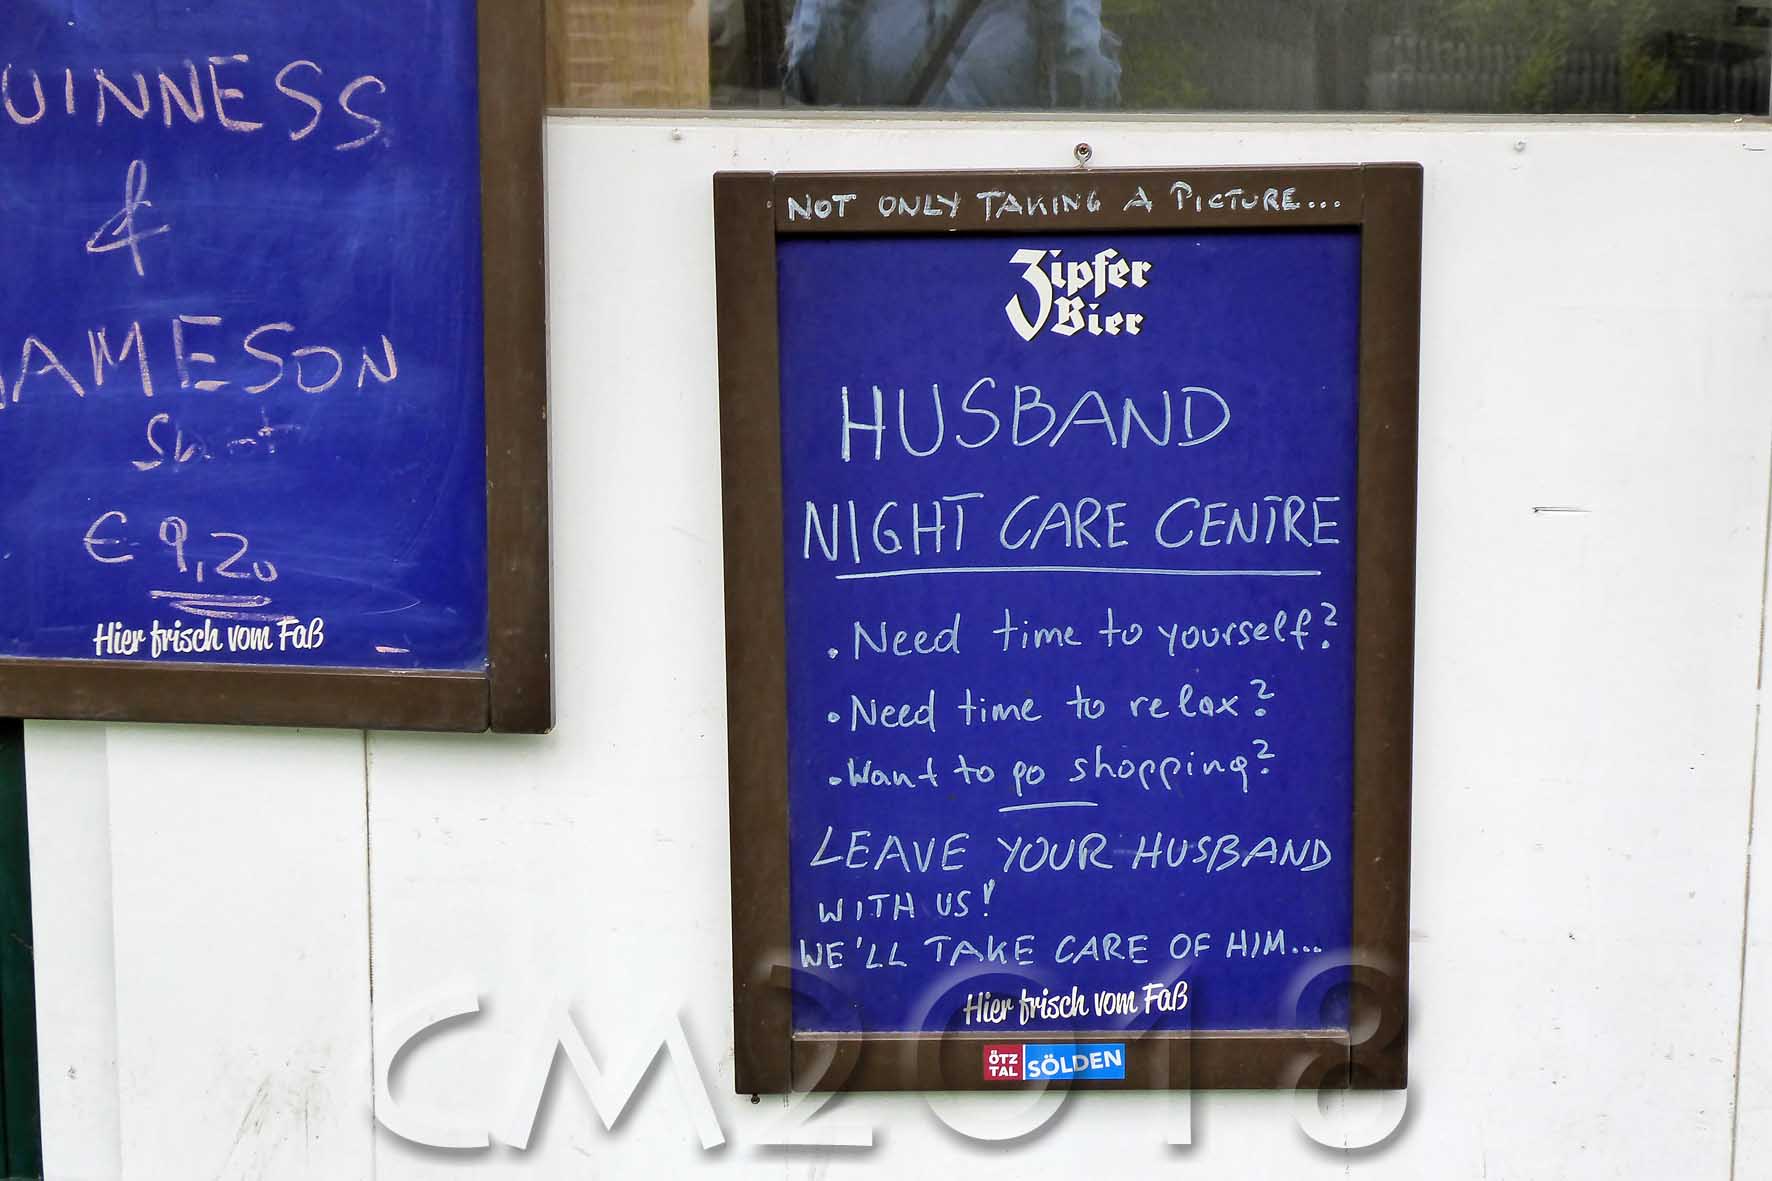 UINNESS
&
JAMESON
Shot
€ 9,20
Hier frisch vom Faß
NOT ONLY TAKING A PICTURE...
Zipfer
Bier
HUSBAND
NIGHT CARE CENTRE
• Need time to yourself?
• Need time to relax?
• Want to go shopping?
LEAVE YOUR HUSBAND
WITH US!
WE'LL TAKE CARE OF HIM...
Hier frisch vom Faß
ÖTZ
TAL
SÖLDEN
CM2018